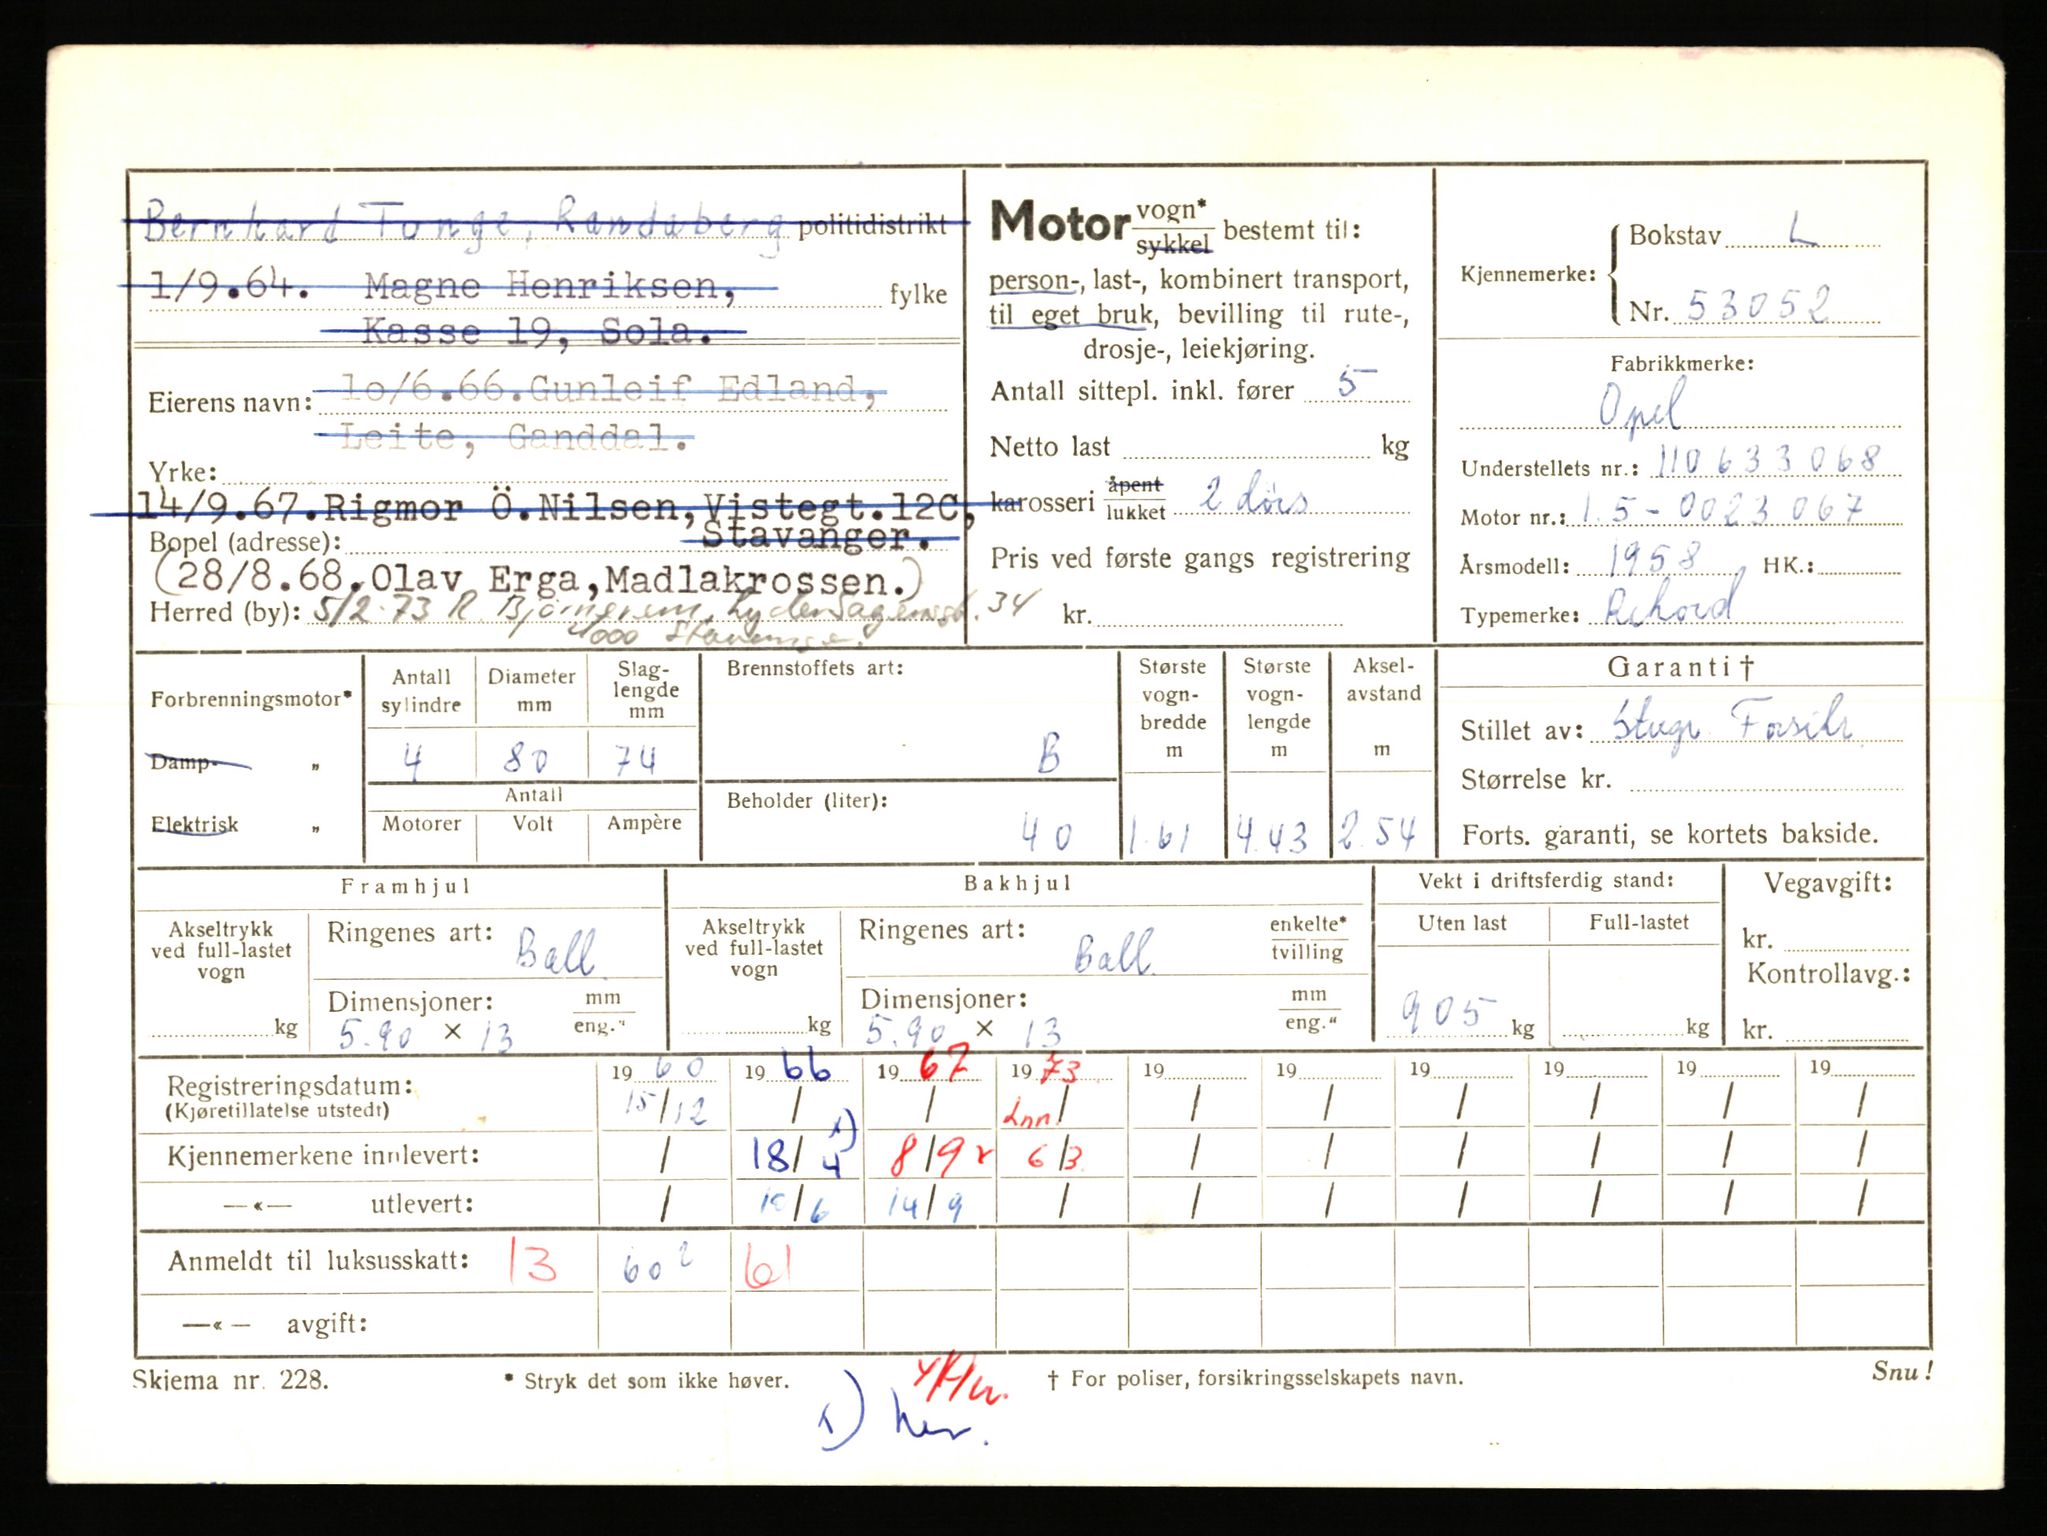 Bernhard Tunge, Randaberg politidistrikt
1/9.64. Magne Henriksen, fylke
Kasse 19, Sola.
Eierens navn: 1o/6.66.Gunleif Edland,
Leite, Ganddal.
Yrke:
14/9.67.Rigmor Ö.Nilsen,Vistegt.12C,
Stavanger.
Bopel (adresse):
(28/8.68.Olav Erga,Madlakrossen.)
Herred (by): 5/2-73 R. 34
4000 Stavanger.
Motor vogn* sykkel bestemt til:
person-, last-, kombinert transport,
til eget bruk, bevilling til rute-,
drosje-, leiekjøring.
Antall sittepl. inkl. fører 5
Netto last kg
karosseri åpent lukket 2 dørs
Pris ved første gangs registrering
kr.
Kjennemerke: Bokstav L
Nr. 53052
Fabrikkmerke:
Opel
Understellets nr.: 110633068
Motor nr.: 1.5-0023067
Årsmodell: 1958 HK.:
Typemerke: Rekord
Forbrenningsmotor*
Damp- „
Elektrisk „
Antall sylindre 4
Diameter mm 80
Slaglengde mm 74
Antall
Motorer Volt Ampère
Brennstoffets art:
B
Beholder (liter):
40
Største vogn-bredde m 1.61
Største vogn-lengde m 4.43
Aksel-avstand m 2.54
Garanti †
Stillet av: Stvgr. Forsikr.
Størrelse kr.
Forts. garanti, se kortets bakside.
Framhjul
Akseltrykk ved full-lastet vogn
kg
Ringenes art: Ball
Dimensjoner: mm eng."
5.90 × 13
Bakhjul
Akseltrykk ved full-lastet vogn
kg
Ringenes art: Ball enkelte* tvilling
Dimensjoner: mm eng."
5.90 × 13
Vekt i driftsferdig stand:
Uten last Full-lastet
905 kg kg
Vegavgift:
kr.
Kontrollavg.:
kr.
Registreringsdatum: 1960 1966 1967 1973 19 19 19 19 19 19
(Kjøretillatelse utstedt) 15/12 / / Inn / / / / / / /
Kjennemerkene innlevert: / 18/4 1) 8/9 r 6/3 / / / / / /
—«— utlevert: / 10/6 14/9 / / / / / / /
Anmeldt til luksusskatt: 13 60 2 61
—«— avgift:
Skjema nr. 228. * Stryk det som ikke høver. † For poliser, forsikringsselskapets navn. Snu!
1) her.